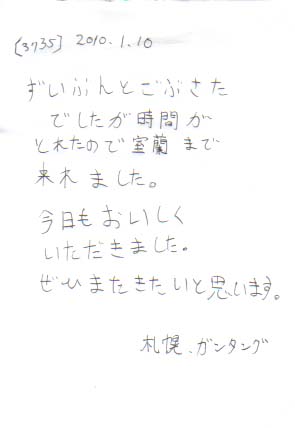 [3735] 2010.1.10
ずいぶんとごぶさた
でしたが時間が
とれたので室蘭まで
来れました。
今日もおいしく
いただきました。
ぜひまたきたいと思います。
札幌、ガンタング